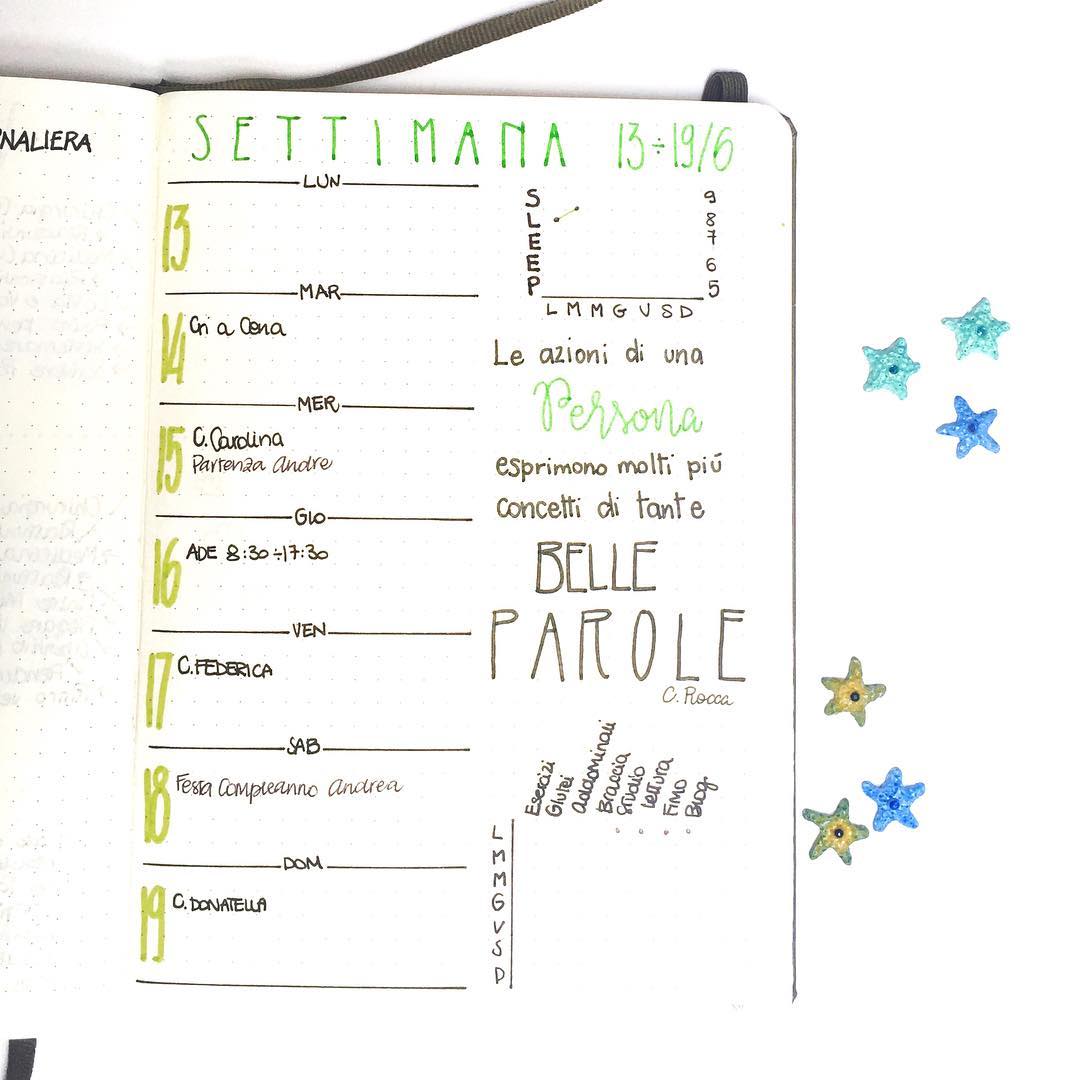 NALIERA
SETTIMANA 13÷19/6
LUN
13
MAR
14 Cri a Cena
MER
15 C. Carolina
Partenza Andre
GIO
16 ADE 8:30÷17:30
VEN
17 C. FEDERICA
SAB
18 Festa Compleanno Andrea
DOM
19 C. DONATELLA
SLEEP
9
8
7
6
5
L M M G V S D
Le azioni di una
Persona
esprimono molti piú
concetti di tante
BELLE
PAROLE
C. Rocca
Esercizi
Glutei
Addominali
Braccia
Studio
Lettura
Fimo
Blog
L
M
M
G
V
S
D